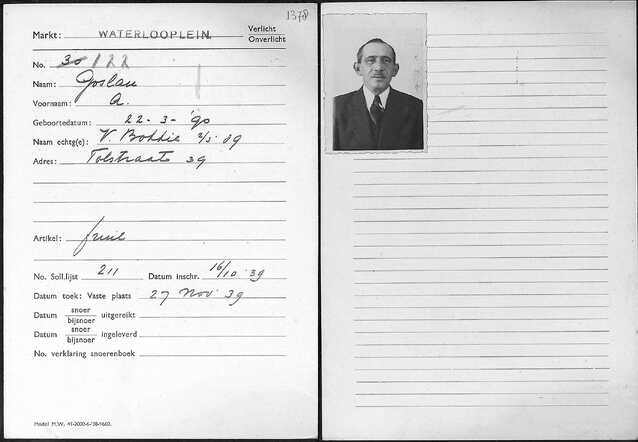 1378
Markt: WATERLOOPLEIN. Verlicht
Onverlicht
No. 30 122
Naam: Goslau
Voornaam: A.
Geboortedatum: 22-3-'90
Naam echtg(e): V. Bokkie 2/5 89
Adres: Tolstraat 39
Artikel: fruit
No. Soll.lijst 211 Datum inschr. 16/10 39
Datum toek: Vaste plaats 27 Nov 39
Datum snoer/bijsnoer uitgereikt
Datum snoer/bijsnoer ingeleverd
No. verklaring snoerenboek
Model M.W. 41-2000-6-'38-1660.